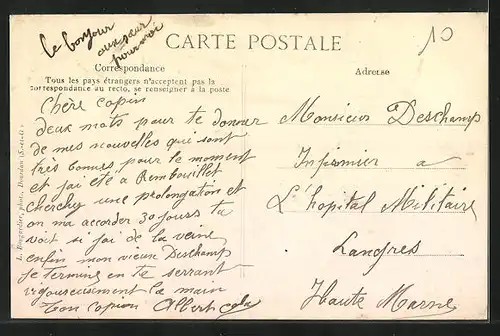 le bonjour
aux sœur
pour moi
10
CARTE POSTALE
Correspondance
Adresse
Tous les pays étrangers n'acceptent pas la
correspondance au recto, se renseigner à la poste
Chère copin
deux mots pour te donner
de mes nouvelles qui sont
très bonnes pour le moment
et j'ai été a Rembouillet
cherchy une prolongation et
on ma accorder 30 jours tu
voit si j'ai de la veine
enfin mon vieux Deschamp
je termine en te serrant
vigoureusement la main
ton copion Albert
Monsieur Deschamp
Infirmier a
L'hopital Militaire
Langres
Haute Marne
phot., Dourdan (S.-et-O.)